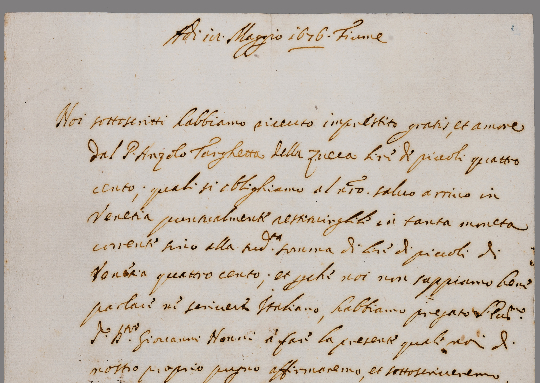 Adi 12. Maggio 1676. Fiume
Noi sottoscritti habbiamo riceuto imprestito gratis, et amore
dal Sr. Angolo Targhetta della Zucca lire di piccoli quattro
cento, quali si oblighiamo al nro. saluo arriuo in
Venetia pontualmente restituirglile in tanta moneta
corrente sino alla sudta. somma di lire di piccoli di
Venetia quattro cento; et perche noi non sappiamo bene
parlare ne scriuere Italiano, habbiamo pregato
Giouanni à fare la presente quale noi di
nostro proprio pugno affirmaremo, et sottoscriueremo